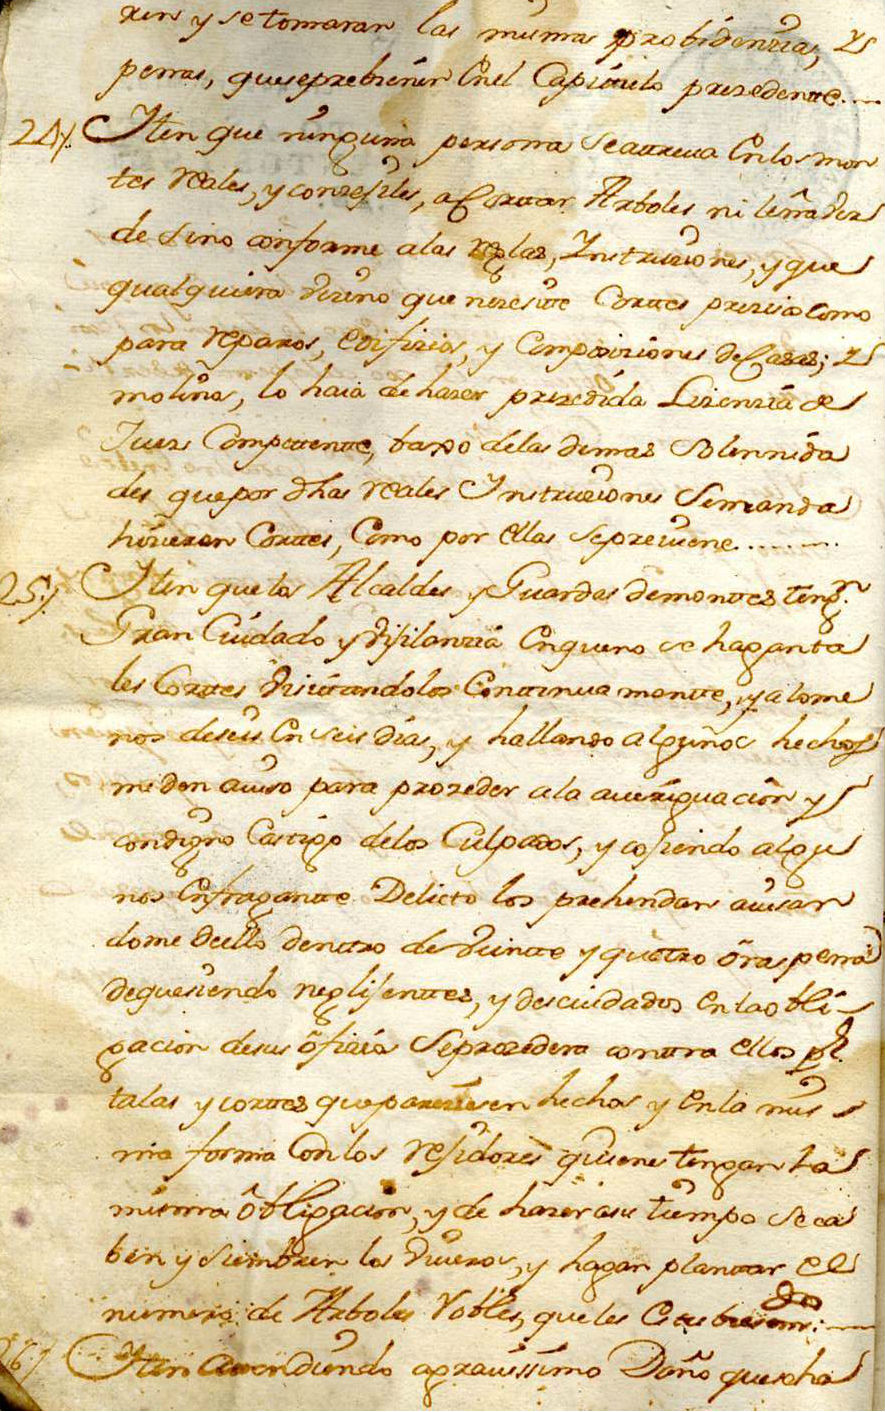 ren y se tomaran las mismas probidenzias, y
penas, que se prebienen En el Capitulo prezedente....
24,, Iten que ninguna persona se atreua En los mon
tes reales, y conzejiles, a Cortar Arboles ni leña ver
de sino conforme a las reglas, Instruziones, y que
qualquiera vezino que nezesite Cortes prezisso como
para reparos, edifizios, y Composiziones de Casas; y
molinos, lo haia de hazer prezedida Lizenzia de
Juez Competente, baxo de las demas Solennida
des que por dhas reales Instruziones Se manda
hizieren Cortes, Como por ellas se preuiene..........
25,, Iten que los Alcaldes y Guardas de montes teng.n
Gran Cuidado y Vijilanzia En que no se hagan ta
les Cortes Visitandolos Continuamente, y a lo me
nos de seis En seis dias, y hallando algunos hechos
me den auiso para prozeder a la aueriguacion y
condigno Castigo de los Culpados, y cojiendo algu
nos En fragante Delicto los prehendan auisan
dome de ello dentro de Veinte y quatro oras pena
de que siendo neglijentes, y descuidados en la obli-
gacion de sus ofizios Se prozedera contra ellos p.r
talas y cortes que parezieren hechos y En la mis
ma forma Con los rejidores quienes tengan la
misma obligacion, y de hazer a su tiempo se ca
ben y siembren los Viueros, y hagan plantar el
numero de Arboles robles, que les
26,, Iten atendiendo a grauissimo Daño que se ha